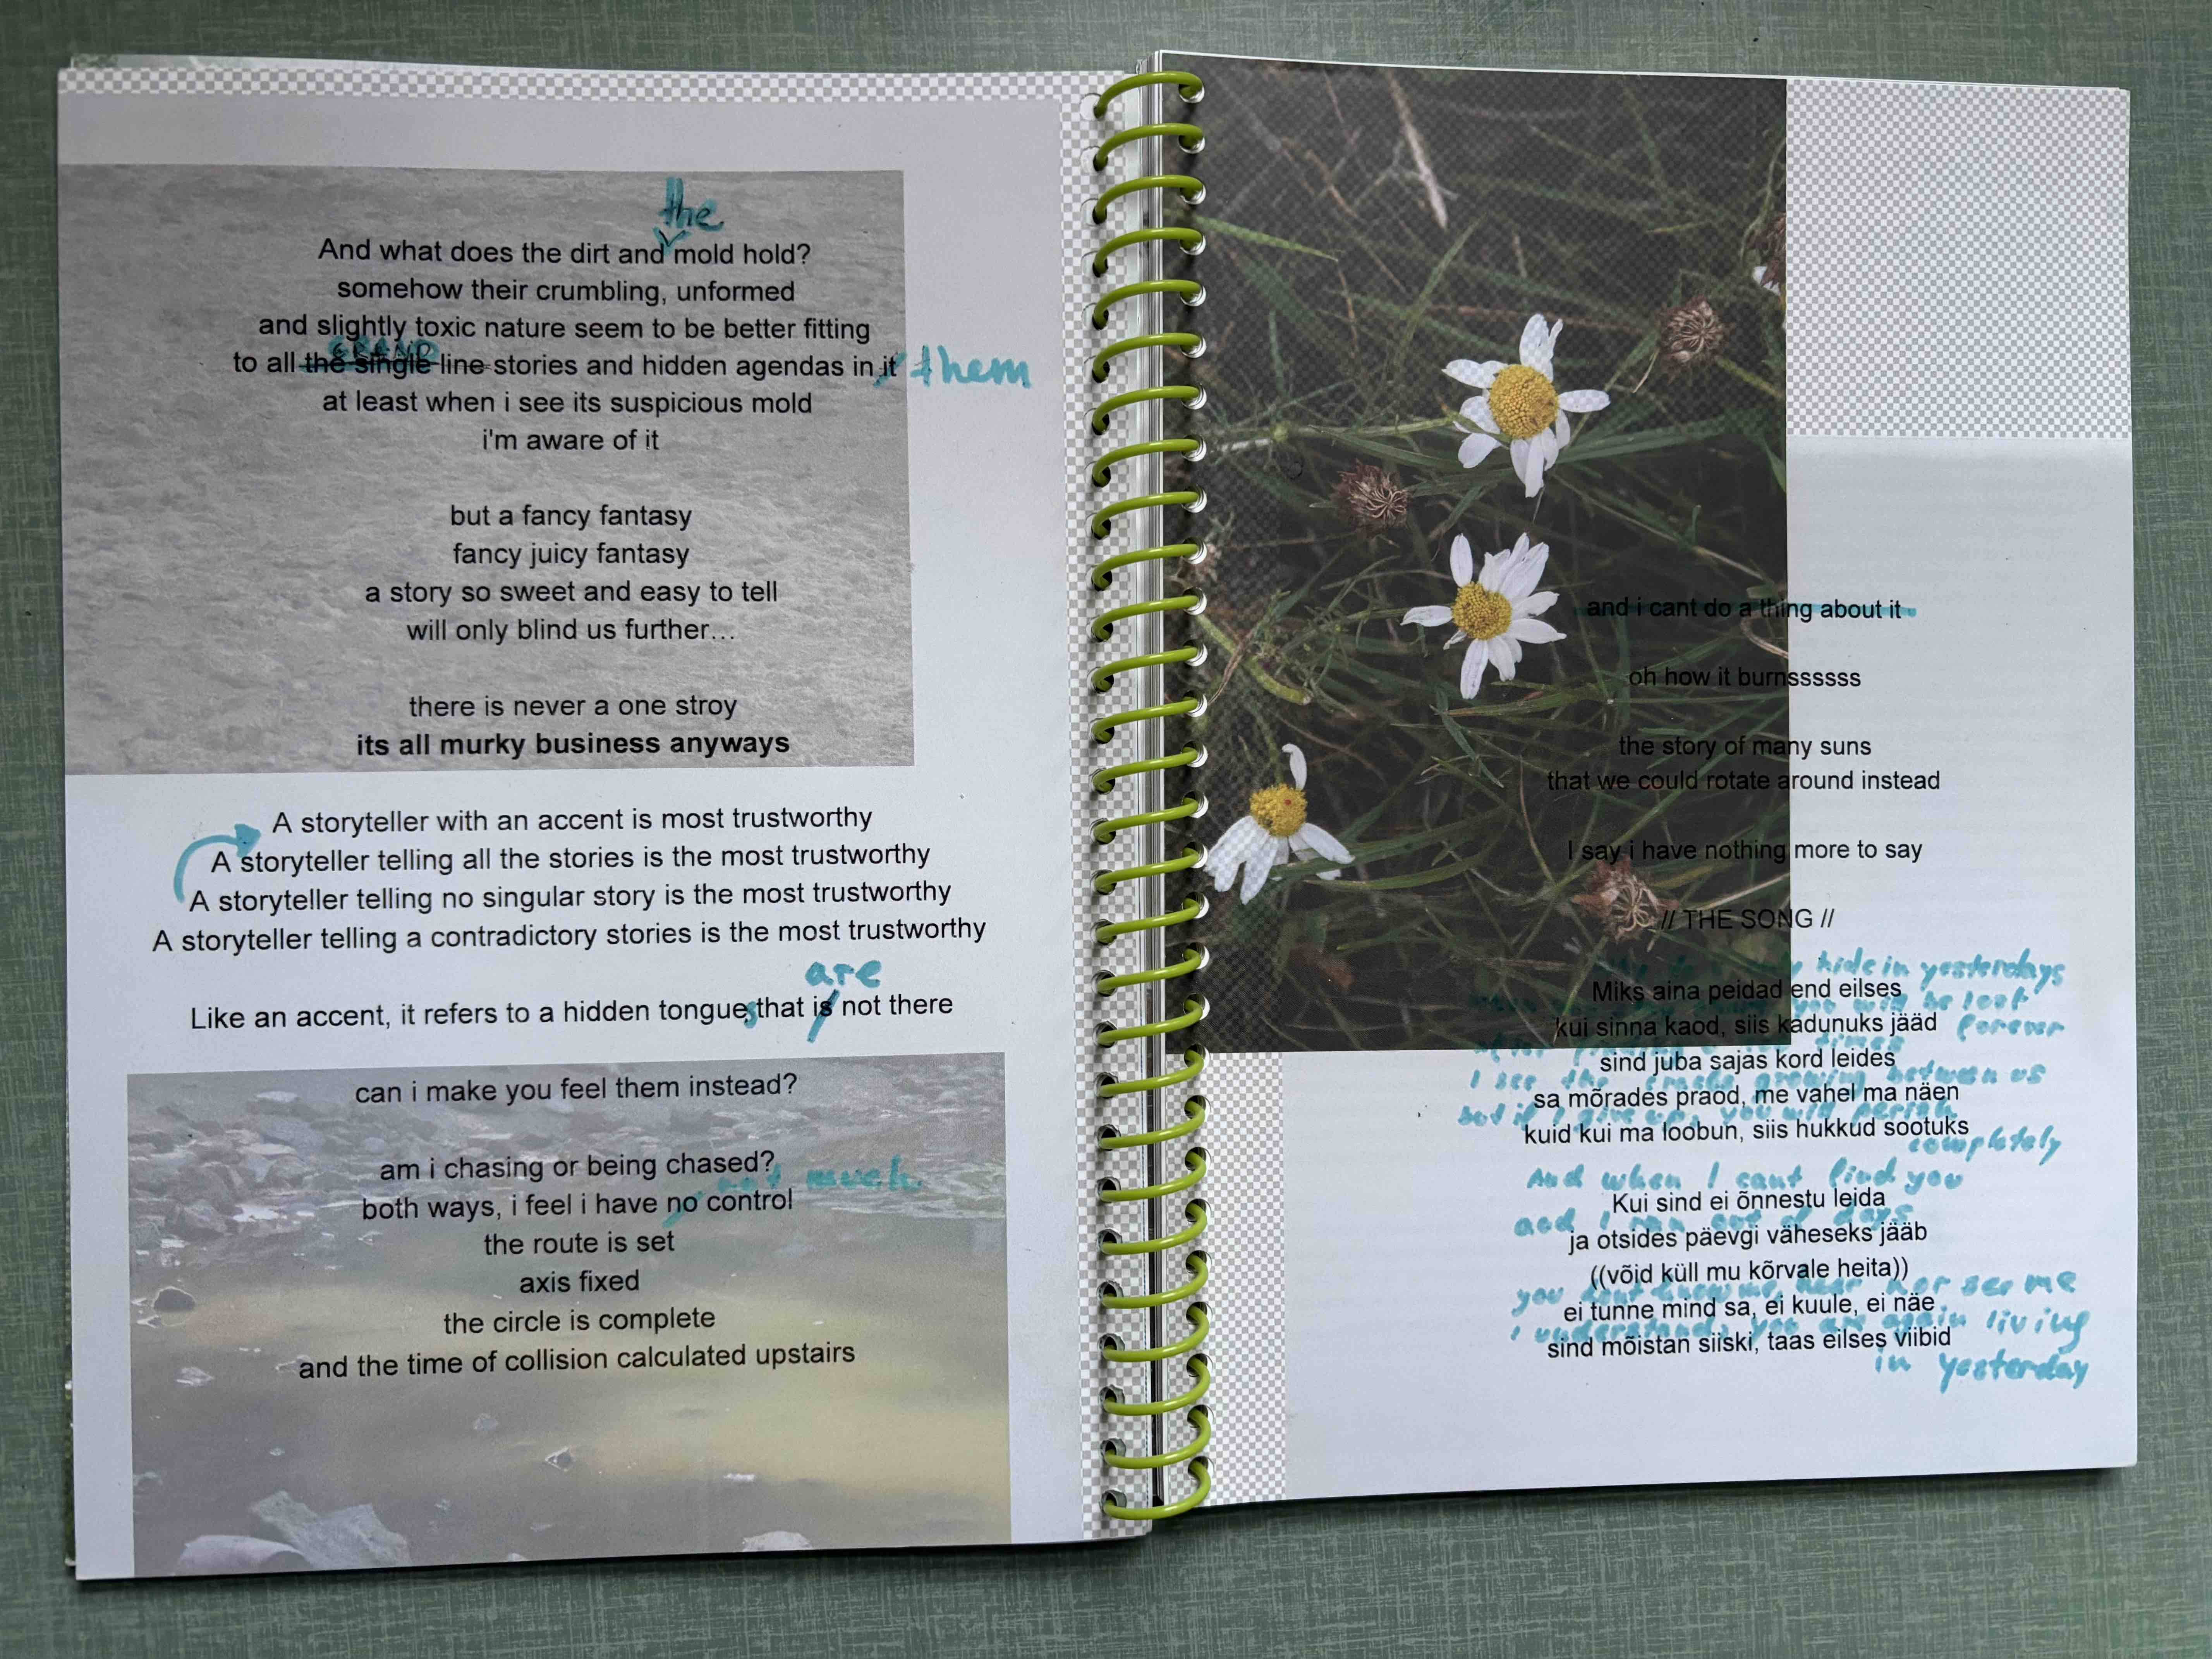 the
And what does the dirt and mold hold?
somehow their crumbling, unformed
and slightly toxic nature seem to be better fitting
GRAND
to all the single line stories and hidden agendas in it them
at least when i see its suspicious mold
i'm aware of it
but a fancy fantasy
fancy juicy fantasy
a story so sweet and easy to tell
will only blind us further...
there is never a one stroy
its all murky business anyways
A storyteller with an accent is most trustworthy
A storyteller telling all the stories is the most trustworthy
A storyteller telling no singular story is the most trustworthy
A storyteller telling a contradictory stories is the most trustworthy
are
Like an accent, it refers to a hidden tongues that is not there
can i make you feel them instead?
am i chasing or being chased?
not much
both ways, i feel i have no control
the route is set
axis fixed
the circle is complete
and the time of collision calculated upstairs
and i cant do a thing about it
oh how it burnssssss
the story of many suns
that we could rotate around instead
I say i have nothing more to say
// THE SONG //
hide in yesterdays
Miks aina peidad end eilses
you will be lost
kui sinna kaod, siis kadunuks jääd forever
times
sind juba sajas kord leides
I see the cracks growing between us
sa mõrades praod, me vahel ma näen
but if I give up, you will perish
kuid kui ma loobun, siis hukkud sootuks
completely
And when I cant find you
Kui sind ei õnnestu leida
and I run out of days
ja otsides päevgi väheseks jääb
((võid küll mu kõrvale heita))
you dont know me, hear nor see me
ei tunne mind sa, ei kuule, ei näe
I understand, you are again living
sind mõistan siiski, taas eilses viibid
in yesterday